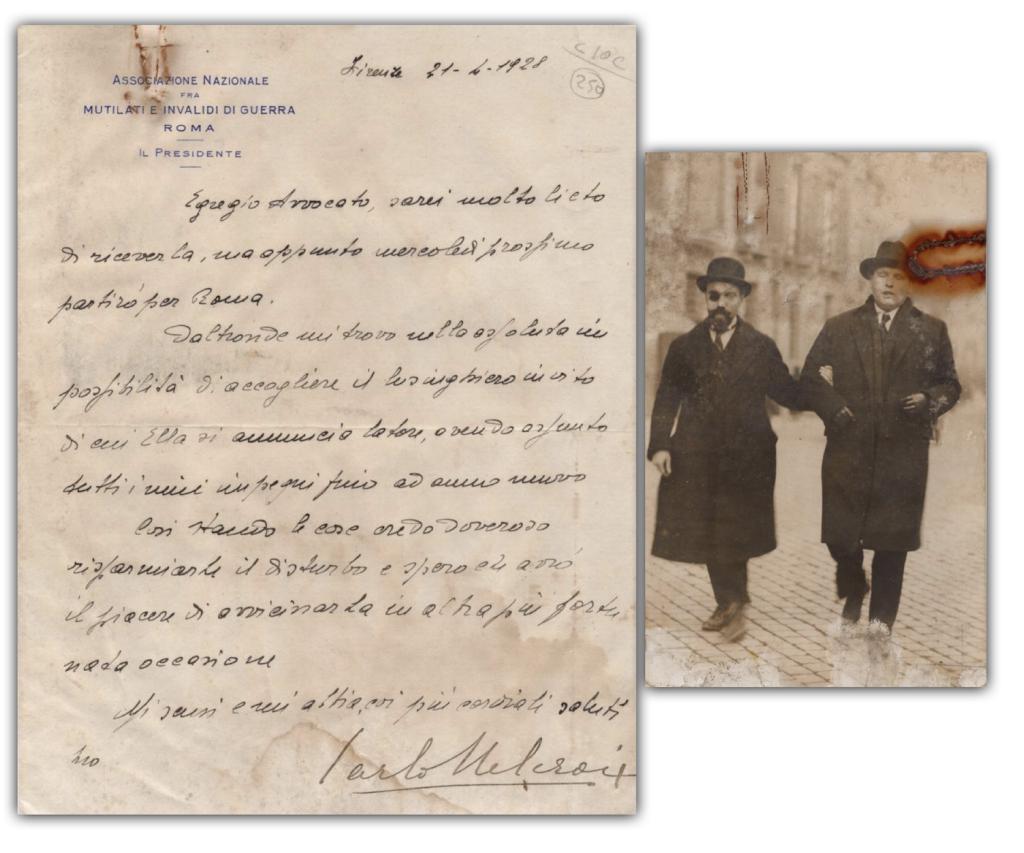 ASSOCIAZIONE NAZIONALE
FRA
MUTILATI E INVALIDI DI GUERRA
ROMA
IL PRESIDENTE
Firenze 21-4-1928
C10C
250
Egregio Avvocato, sarei molto lieto
di riceverla, ma appunto mercoledì prossimo
partirò per Roma.
Daltronde mi trovo nella assoluta im
possibilità di accogliere il lusinghiero invito
di cui Ella si annuncia latore, avendo assunto
tutti i miei impegni fino ad anno nuovo
Così stando le cose credo doveroso
risparmiarle il disturbo e spero che avrò
il piacere di avvicinarla in altra più fortu
nata occasione
Mi scusi e mi abbia, coi più cordiali saluti
suo
Carlo Delcroix